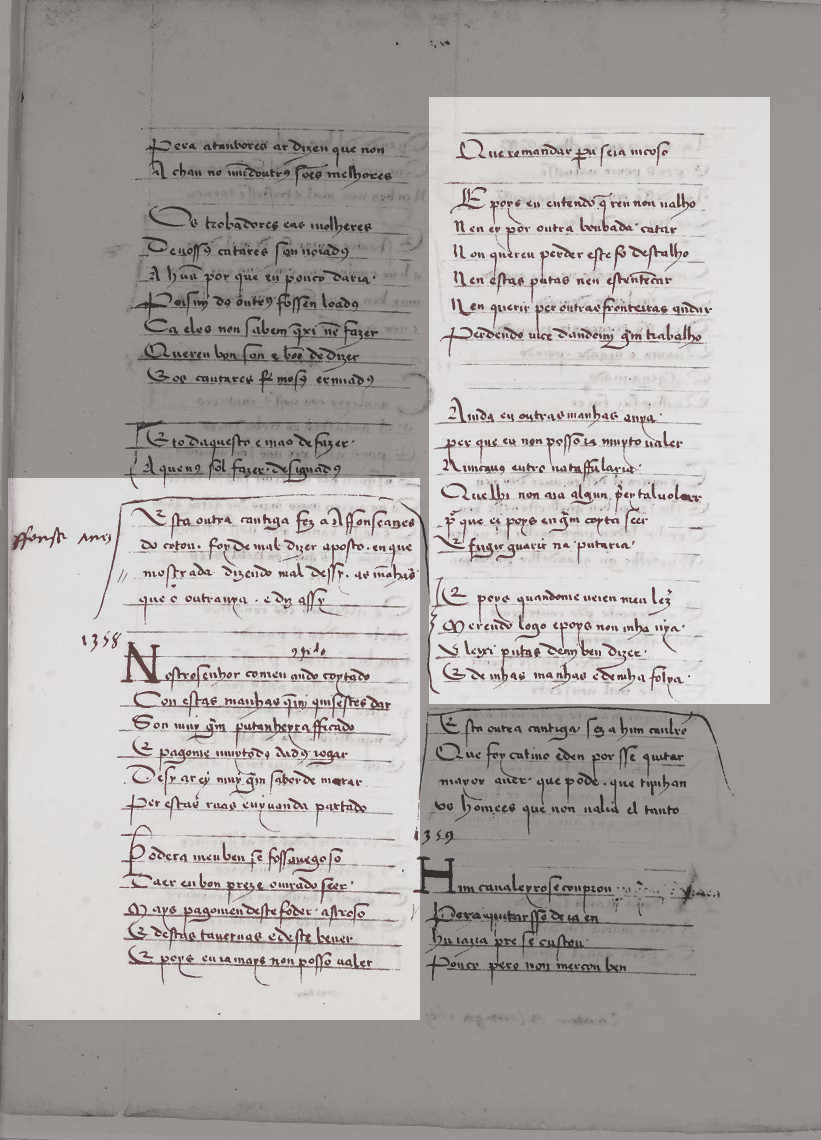 Pera atanbores ar dizen que non
Achan no mũdoutrꝯ sões melhores
Os trobadores eas molheres
Deuossꝯ cãtares son noiadꝯ
A hũa por que eu pouco daria
Poismj dos outrꝯ fossen loadꝯ
Ca eles non sabem q̃xi nẽ fazer
Queren bon son e boõ de dizer
Eos cantares fremosꝯ e rimadꝯ
E todaquesto e mao de fazer
A quenꝯ sol fazer desiguadꝯ
Esta outra cantiga fez a Affonseanes
do coton. foy de mal dizer aposto. en que
mostrada dizendo mal dessy. as mãhas
que outrauya. e diz assy
1358
Nostrosenhor comeu ando coytado
Con estas manhas q̃mj quisestes dar
Son muy gm̃ putanheyrafficado
E pagome muytodꝯ dadꝯ iogar
Desy ar ey muy gm̃ saborde morar
Per estas ruas euyuanda partado
Podera meu ben se fossauegoso
Caer en bon preze onrado seer
Mays pagomen deste foder astroso
E destas tauernas e deste bever
E poys eu ia mays non posso ualer
Que romandar pu seia uicoso
E poys eu entendo q̃ ren non ualho
Nen ey por outra bonbada catar
Non quereu perder este fodestalho
Nen estas putas nen estentẽcar
Nen querir per outras fronteiras andar
Perdendo uice dandomj gm̃ trabalho
Ainda eu outras manhas auya
per que eu non posso ia muyto ualer
Nuncauꝯ entro na taffularia
Que lhi non aia algun p̃ey taluoluer
p̃ que ei poys en gm̃ coyta seer
E fugir guarir na putaria
E poys quandome ueien meu lez̃
Merendo logo e poys uou mha uya
E leyxi putas demj ben dizer
E de mhas manhas e demha folya
Esta outra cantiga fez a hun caualro
Que foy catiuo e den por sse quitar
mayor auer que pode. que tijnhan
os homees que non ualia el tanto
1359
Hun caualeyro se conprou
Pera quitarsse de iaen
hu iazia preso e custou
Pouco pero non mercou ben